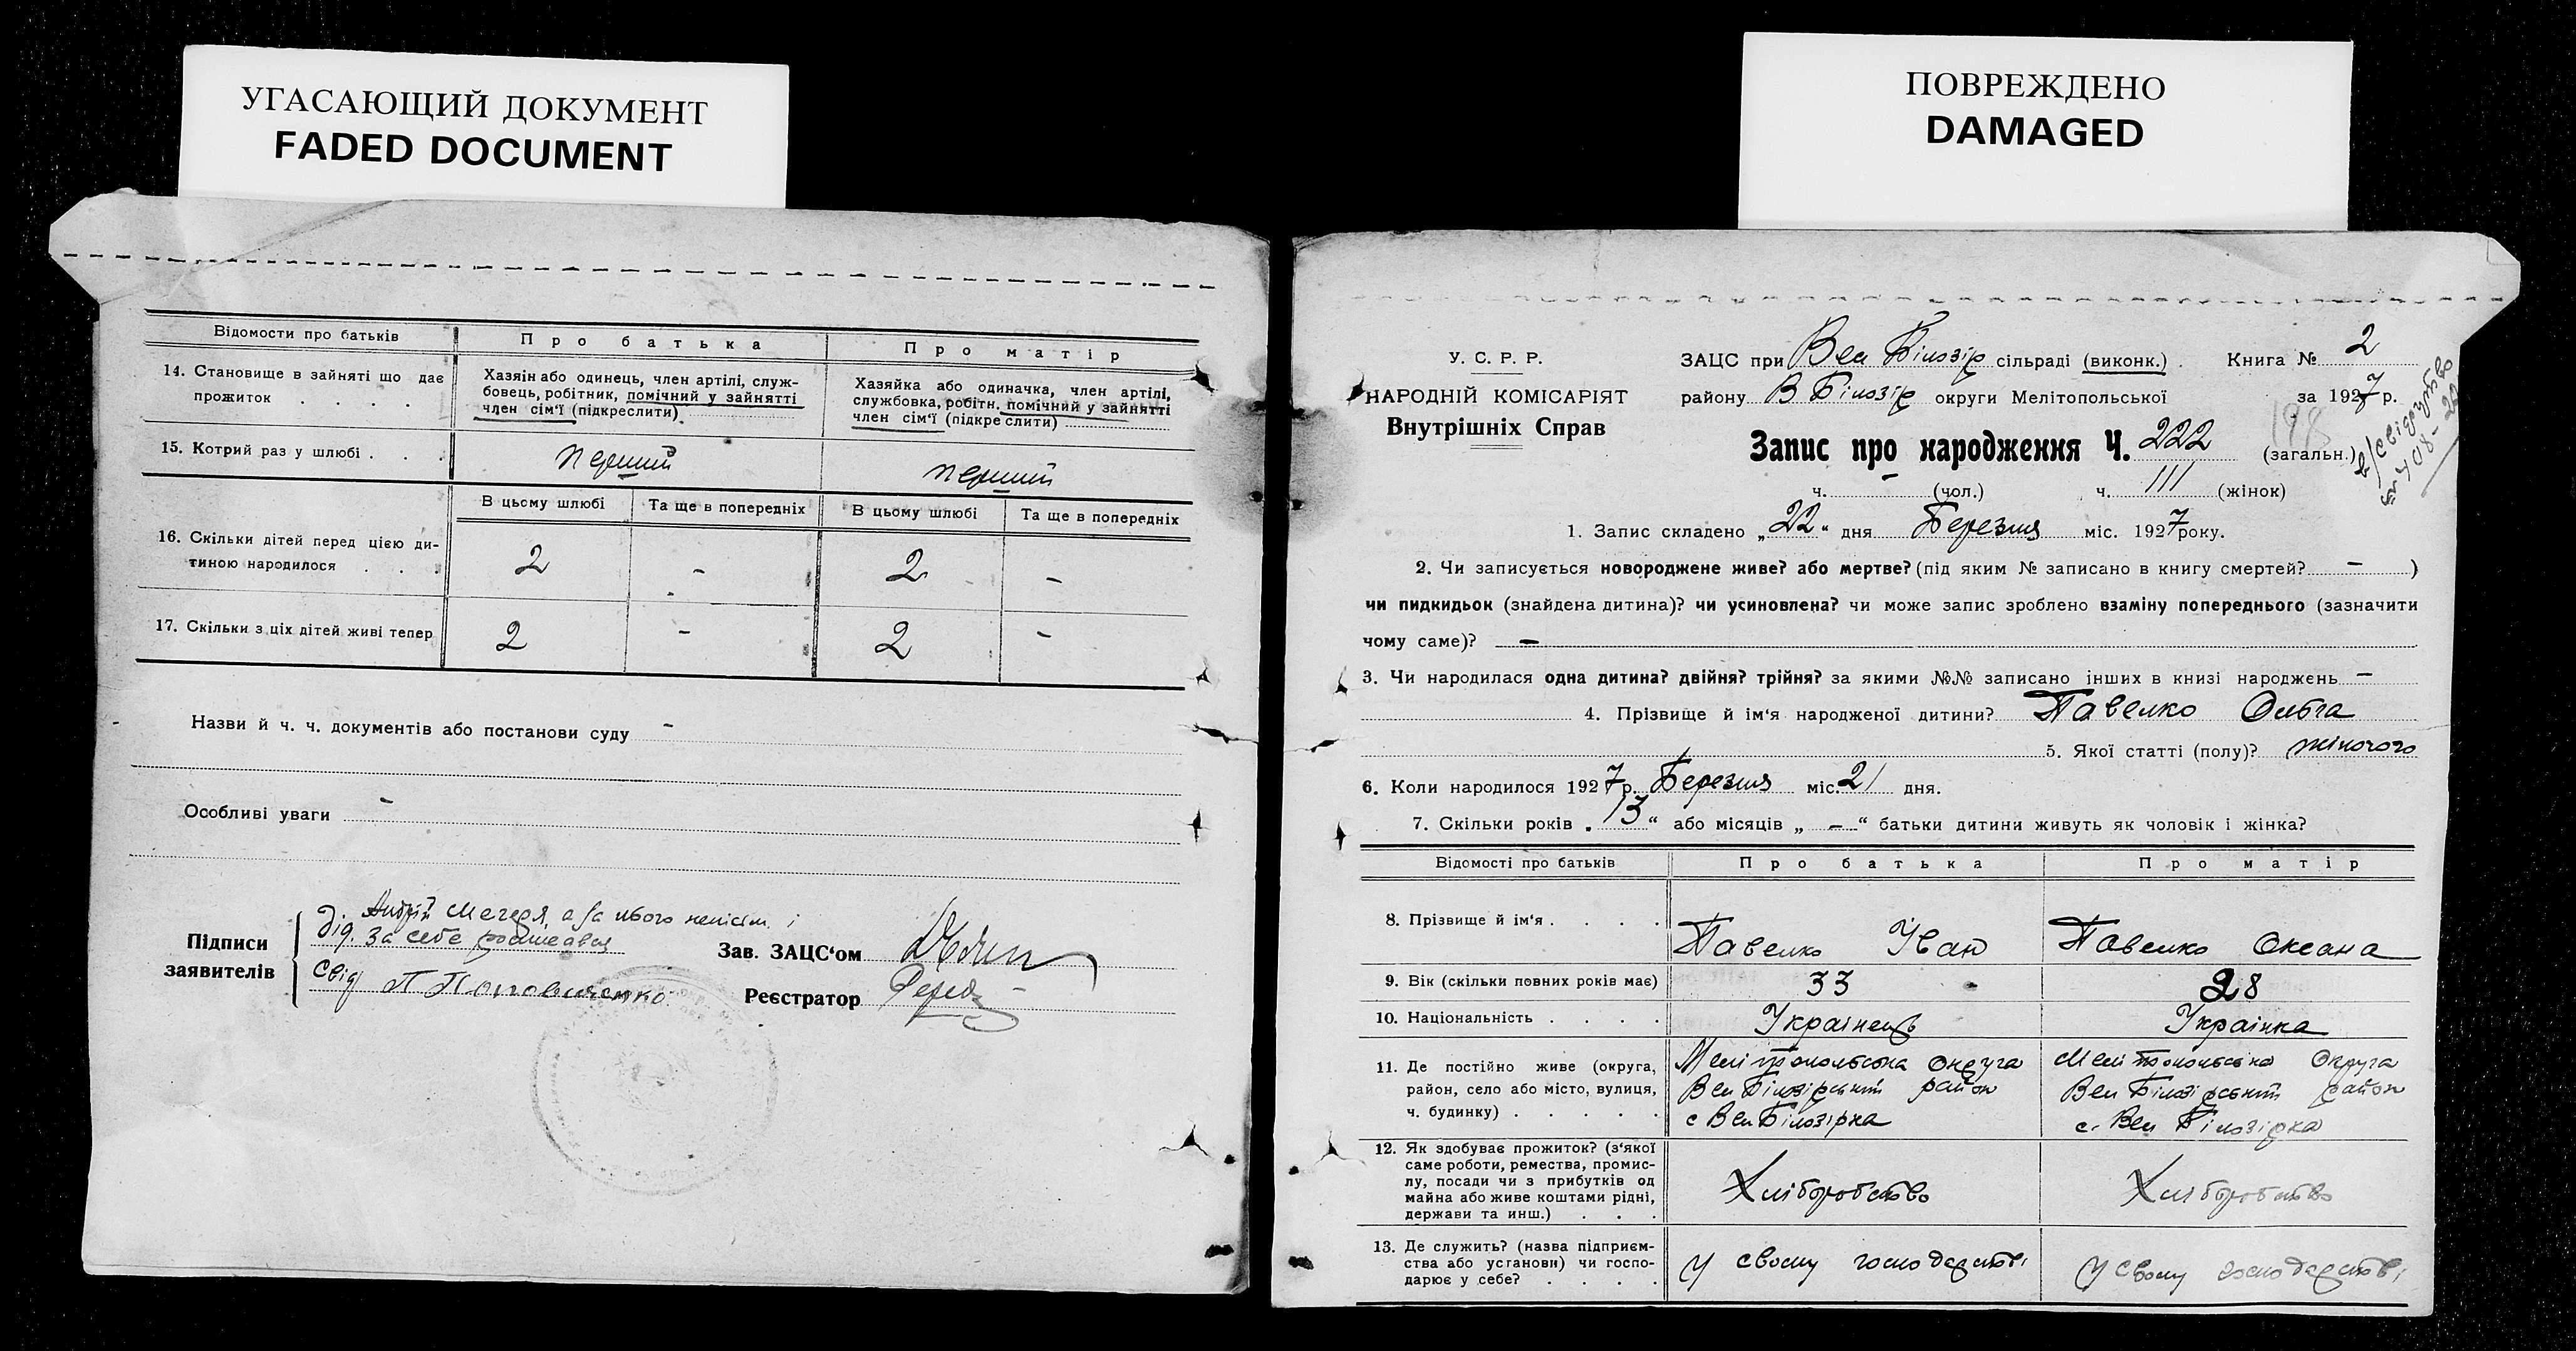 УГАСАЮЩИЙ ДОКУМЕНТ
FADED DOCUMENT
Відомости про батьків
Про батька
Про матір
14. Становище в зайняті що дає
прожиток . . . .
Хазяін або одинець, член артілі, служ-
бовець, робітник, помічний у зайнятті
член сім'ї (підкреслити)
Хазяйка або одиначка, член артілі,
службовка, робітн. помічний у зайнятті
член сім'ї (підкреслити)
15. Котрий раз у шлюбі . . .
перший
перший
В цьому шлюбі
Та ще в попередніх
В цьому шлюбі
Та ще в попередніх
16. Скільки дітей перед цією ди-
тиною народилося . . .
2
-
2
-
17. Скільки з ціх дітей живі тепер
2
-
2
-
Назви й ч. ч. документів або постанови суду -
Особливі уваги -
Підписи
заявителів
Андрій Мегедя, а за нього неписьм. і
Дід. за себе
Свід П Поповиченко
Зав. ЗАЦС'ом
Реєстратор
ПОВРЕЖДЕНО
DAMAGED
У. С. Р. Р.
НАРОДНІЙ КОМІСАРІЯТ
Внутрішніх Справ
ЗАЦС при Вел Білозір сільраді (виконк.) . Книга № 2
району В Білозір округи Мелітопольської за 1927 р.
198
в/свідоцтво
Запис про народження Ч. 222 (загальн.)
ч. - (чол.) ч. 111 (жінок)
1. Запис складено „22“ дня Березня міс. 1927 року.
2. Чи записується новороджене живе? або мертве? (під яким № записано в книгу смертей? - )
чи пидкидьок (знайдена дитина)? чи усиновлена? чи може запис зроблено взаміну попереднього (зазначити
чому саме)? -
3. Чи народилася одна дитина? двійня? трійня? за якими №№ записано інших в книзі народжень -
4. Прізвище й ім'я народженої дитини? Павенко Ольга
5. Якої статті (полу)? жіночого
6. Коли народилося 1927 р. Березня міс. 21 дня.
7. Скільки років „13“ або місяців „-“ батьки дитини живуть як чоловік і жінка?
Відомості про батьків
Про батька
Про матір
8. Прізвище й ім'я . . . .
Павенко Іван
Павенко Оксана
9. Вік (скільки повних років має)
33
28
10. Національність . . . .
Українець
Українка
11. Де постійно живе (округа,
район, село або місто, вулиця,
ч. будинку) . . . . .
Мелітопольська Округа
Вел Білозірський район
с Вел Білозірка
Мелітопольська Округа
Вел Білозірський район
с. Вел Білозірка
12. Як здобуває прожиток? (з'якої
саме роботи, ремества, промис-
лу, посади чи з прибутків од
майна або живе коштами рідні,
держави та инш.) . . .
Хліборобство
Хліборобство
13. Де служить? (назва підприєм-
ства або установи) чи госпо-
дарює у себе? . . . .
У своему господарстві
У своему господарстві